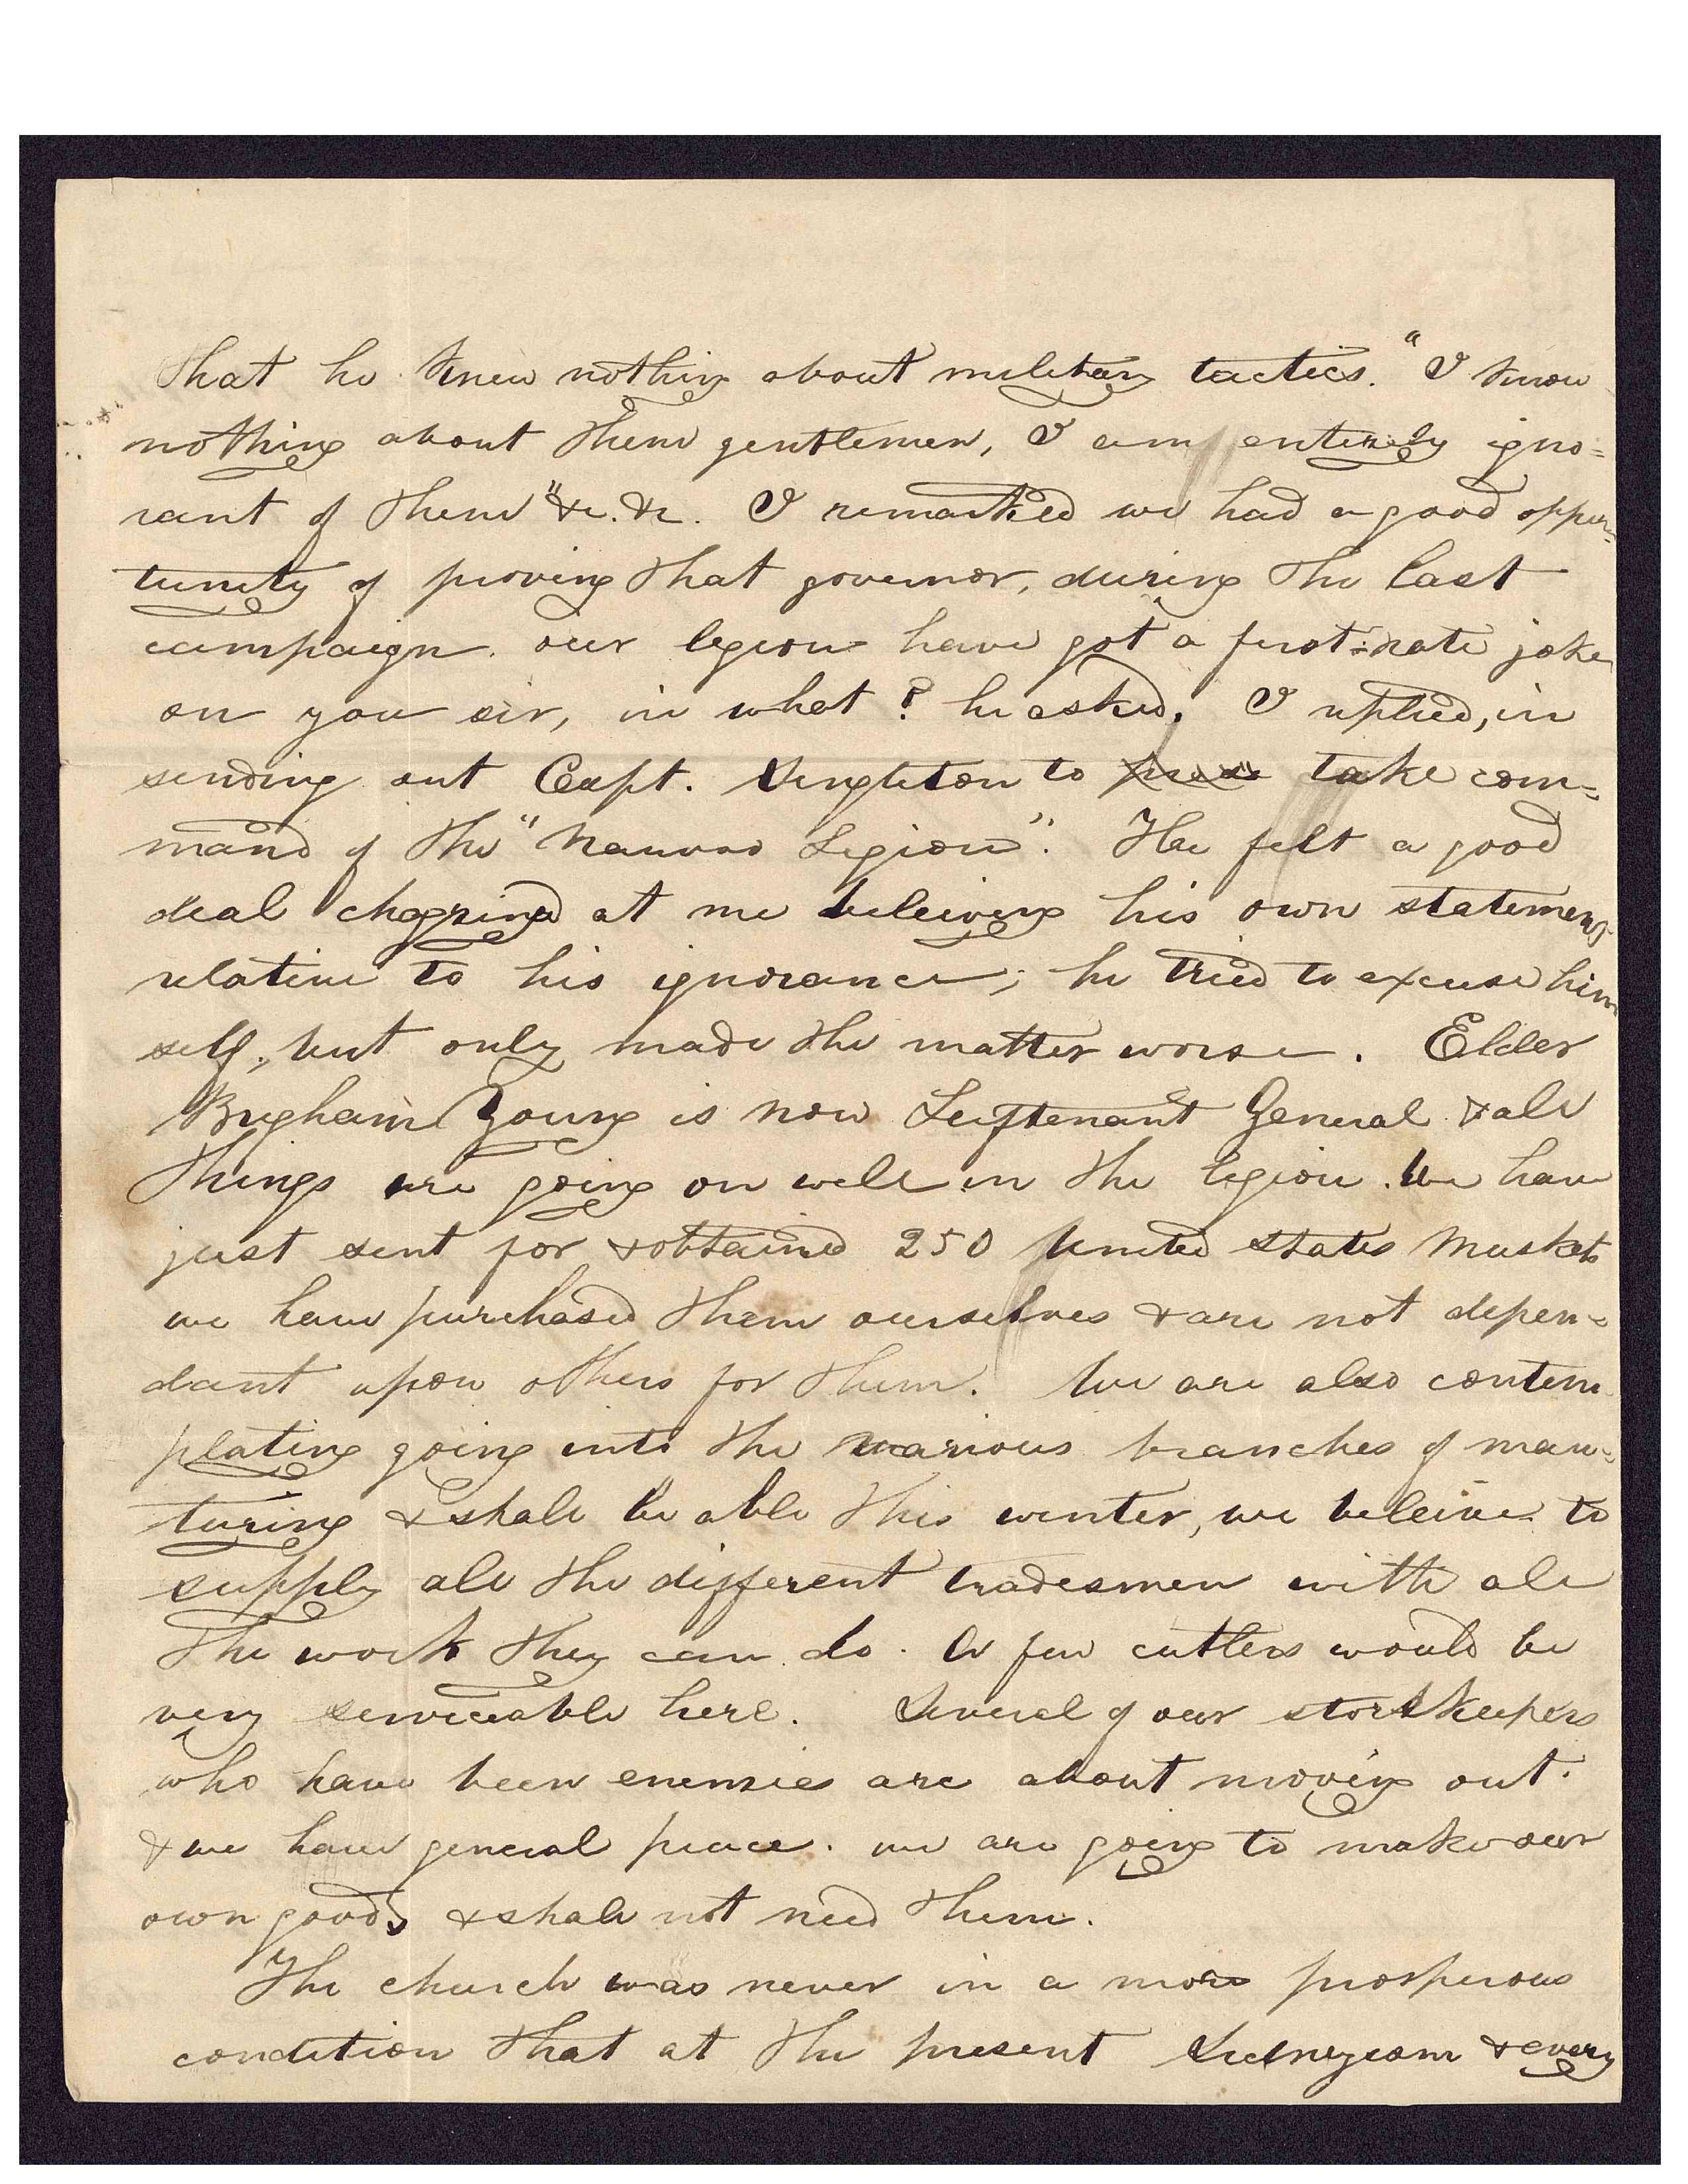 that he knew nothing about military tactics. "I know
nothing about them gentlemen, I am entirely igno=
rant of them" &c. &c. I remarked we had a good oppor=
tunity of proving that governor, during the last
campaign. our legion have got a first=rate joke
on you sir, in what? he asked. I replied, in
sending out Capt. Singleton to take com=
mand of the "Nauvoo Legion". He felt a good
deal chagrined at me beleiving his own statement
relative to his ignorance; he tried to excuse him
self, but only made the matter worse. Elder
Brigham Young is now Leiftenant General & all
things are going on well in the legion. We have
just sent for & obtained 250 United States Muskets
we have purchased them ourselves & are not depen=
dant upon others for them. We are also contem
plating going into the various branches of man=
turing & shall be able this winter, we beleive to
supply all the different tradesmen with all
the work they can do. A few cutlers would be
very serviceable here. Several of our storekeepers
who have been enemies are about moving out.
& we have general peace. we are going to make our
own goods & shall not need them.
The church was never in a more prosperous
condition that at the present Sidneyism & every